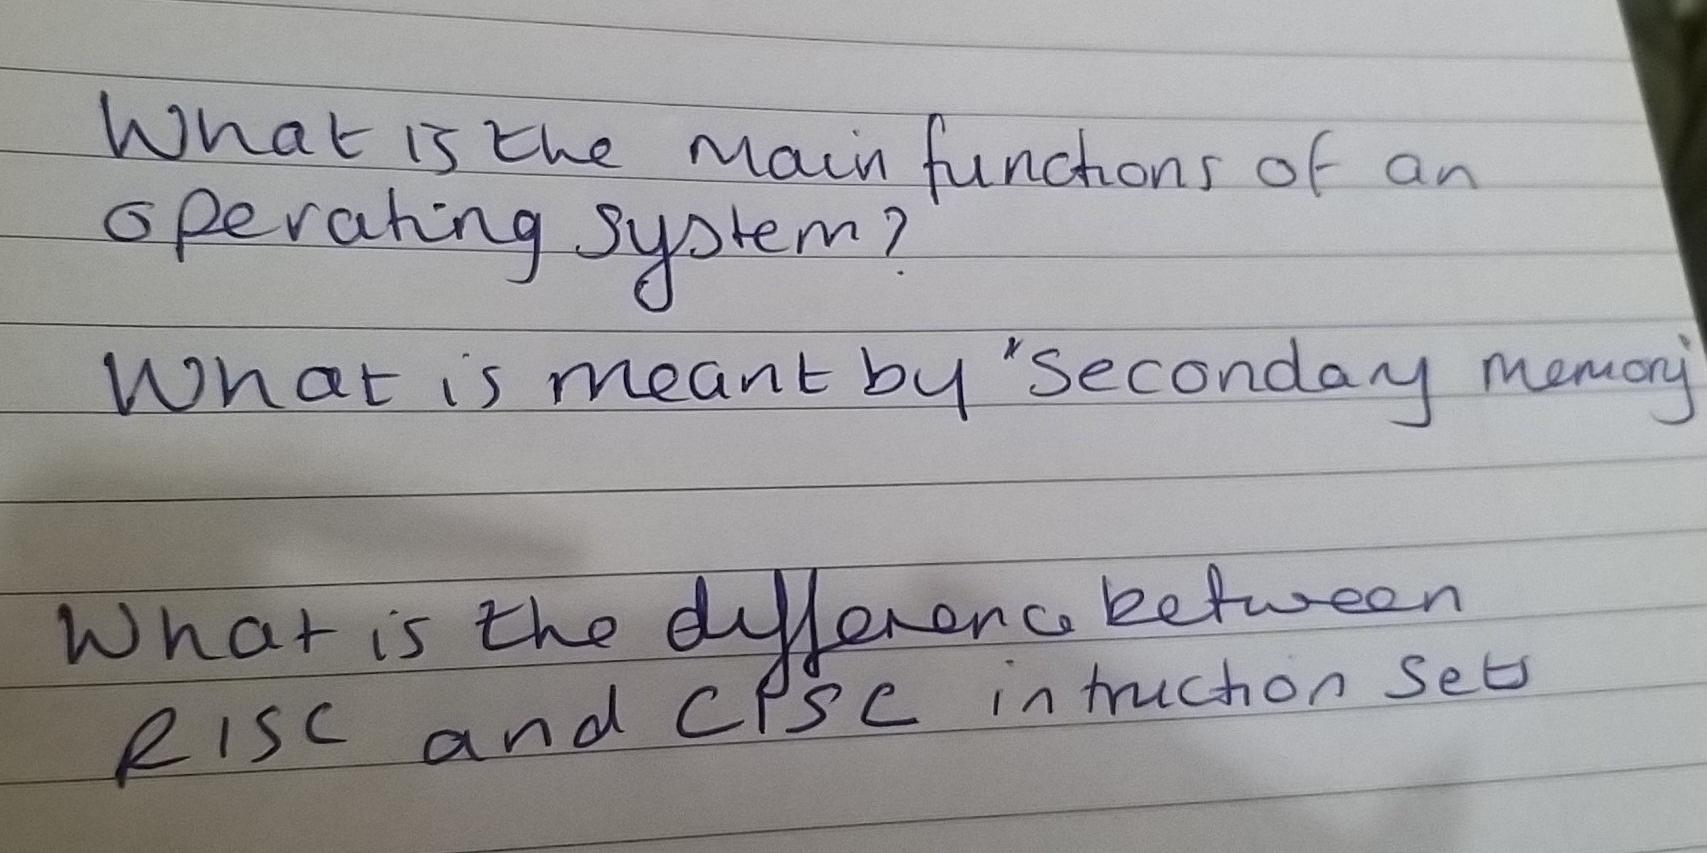 What is the main functions of an
operating system?
What is meant by "Seconday memory
What is the difference between
RISC and CISC intruction sets